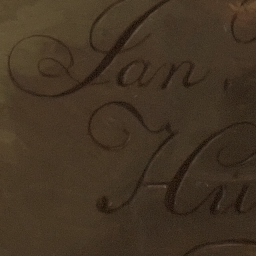 Jan
Hu